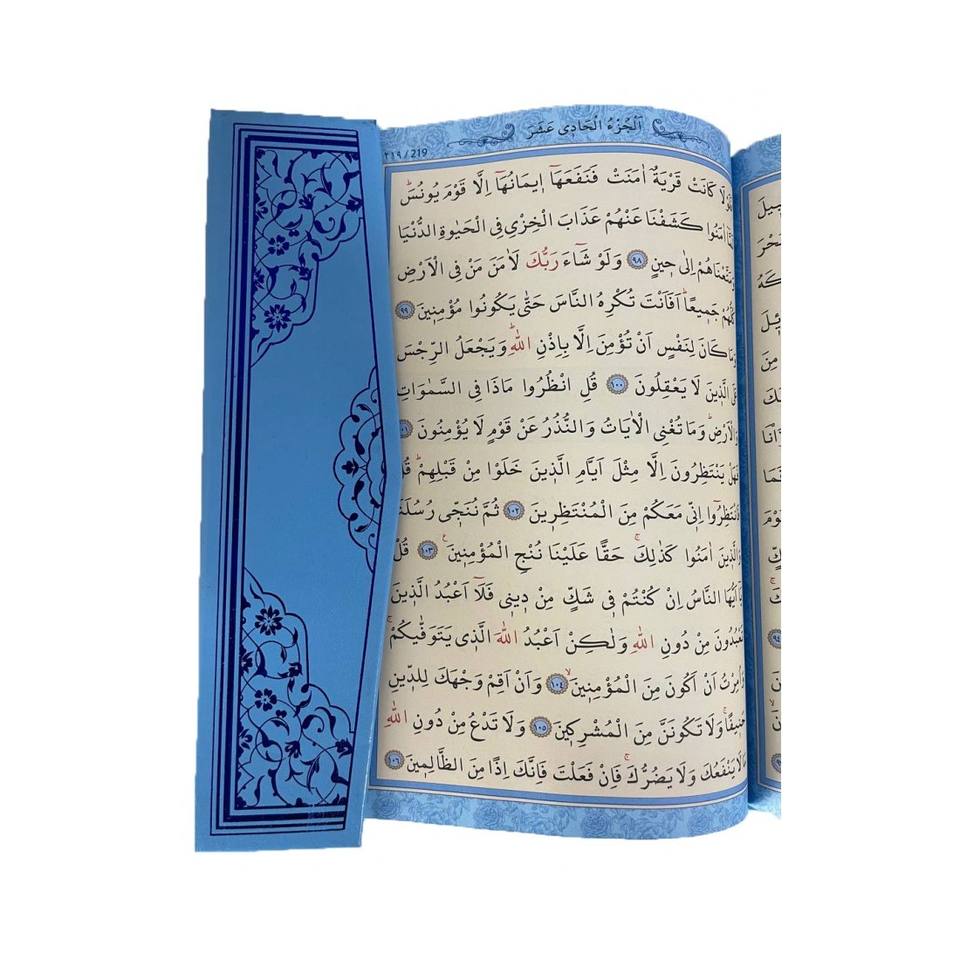 اَلْجُزْءُ الْحَادِى عَشَرَ
٢١٩ / 219
كَانَتْ قَرْيَةٌ اٰمَنَتْ فَنَفَعَهَٓا ا۪يمَانُهَٓا اِلَّا قَوْمَ يُونُسَۜ
اٰمَنُوا كَشَفْنَا عَنْهُمْ عَذَابَ الْخِزْيِ فِي الْحَيٰوةِ الدُّنْيَا
وَمَتَّعْنَاهُمْ اِلٰى ح۪ينٍ ﴿٩٨﴾ وَلَوْ شَٓاءَ رَبُّكَ لَاٰمَنَ مَنْ فِي الْاَرْضِ
كُلُّهُمْ جَم۪يعًاۜ اَفَاَنْتَ تُكْرِهُ النَّاسَ حَتّٰى يَكُونُوا مُؤْمِن۪ينَ ﴿٩٩﴾
وَمَا كَانَ لِنَفْسٍ اَنْ تُؤْمِنَ اِلَّا بِاِذْنِ اللّٰهِۜ وَيَجْعَلُ الرِّجْسَ
عَلَى الَّذ۪ينَ لَا يَعْقِلُونَ ﴿١٠٠﴾ قُلِ انْظُرُوا مَاذَا فِي السَّمٰوَاتِ
وَالْاَرْضِۜ وَمَا تُغْنِي الْاٰيَاتُ وَالنُّذُرُ عَنْ قَوْمٍ لَا يُؤْمِنُونَ ﴿١٠١﴾
فَهَلْ يَنْتَظِرُونَ اِلَّا مِثْلَ اَيَّامِ الَّذ۪ينَ خَلَوْا مِنْ قَبْلِهِمْۜ قُلْ
فَانْتَظِرُٓوا اِنّ۪ي مَعَكُمْ مِنَ الْمُنْتَظِر۪ينَ ﴿١٠٢﴾ ثُمَّ نُنَجّ۪ي رُسُلَنَا
وَالَّذ۪ينَ اٰمَنُوا كَذٰلِكَۚ حَقًّا عَلَيْنَا نُنْجِ الْمُؤْمِن۪ينَ۟ ﴿١٠٣﴾ قُلْ
يَٓا اَيُّهَا النَّاسُ اِنْ كُنْتُمْ ف۪ي شَكٍّ مِنْ د۪ين۪ي فَلَٓا اَعْبُدُ الَّذ۪ينَ
تَعْبُدُونَ مِنْ دُونِ اللّٰهِ وَلٰكِنْ اَعْبُدُ اللّٰهَ الَّذ۪ي يَتَوَفّٰيكُمْۚ
وَاُمِرْتُ اَنْ اَكُونَ مِنَ الْمُؤْمِن۪ينَۙ ﴿١٠٤﴾ وَاَنْ اَقِمْ وَجْهَكَ لِلدّ۪ينِ
حَن۪يفًاۚ وَلَا تَكُونَنَّ مِنَ الْمُشْرِك۪ينَ ﴿١٠٥﴾ وَلَا تَدْعُ مِنْ دُونِ اللّٰهِ
مَا لَا يَنْفَعُكَ وَلَا يَضُرُّكَۚ فَاِنْ فَعَلْتَ فَاِنَّكَ اِذًا مِنَ الظَّالِم۪ينَ ﴿١٠٦﴾